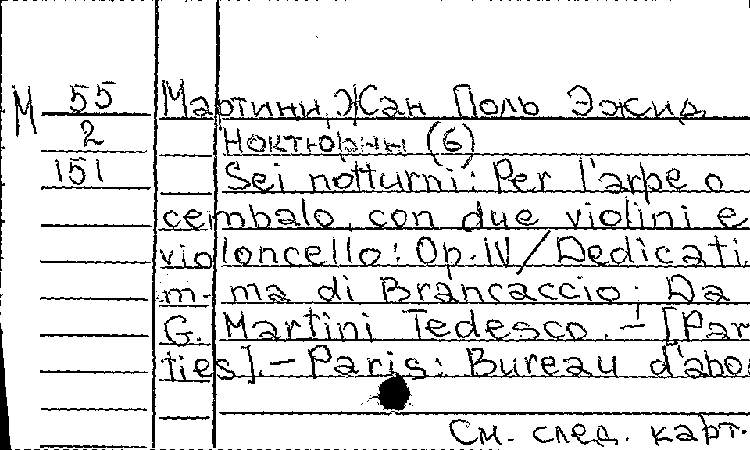 М 55 Мартини, Жан Поль Эжид
2 Ноктюрны (6)
151 Sei notturni: Per l'arpe o
cembalo, con due violini e
violoncello: Op. IV / Dedicati
m-ma di Brancaccio; Da
G. Martini Tedesco. – [Par
ties]. – Paris: Bureau d'abo
См. след. карт.